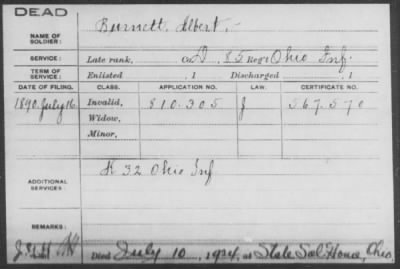 DEAD
NAME OF SOLDIER: Burnett, Albert.
SERVICE: Late rank, Co. D, 85 Reg't Ohio Inf.
TERM OF SERVICE: Enlisted , 1 Discharged , 1
DATE OF FILING. CLASS. APPLICATION NO. LAW. CERTIFICATE NO.
1890. July 16. Invalid, 810.305 J 567.570
Widow,
Minor,
ADDITIONAL SERVICES: K 32 Ohio Inf
REMARKS:
Died July 10, 1924, at State Sol. Home, Ohio